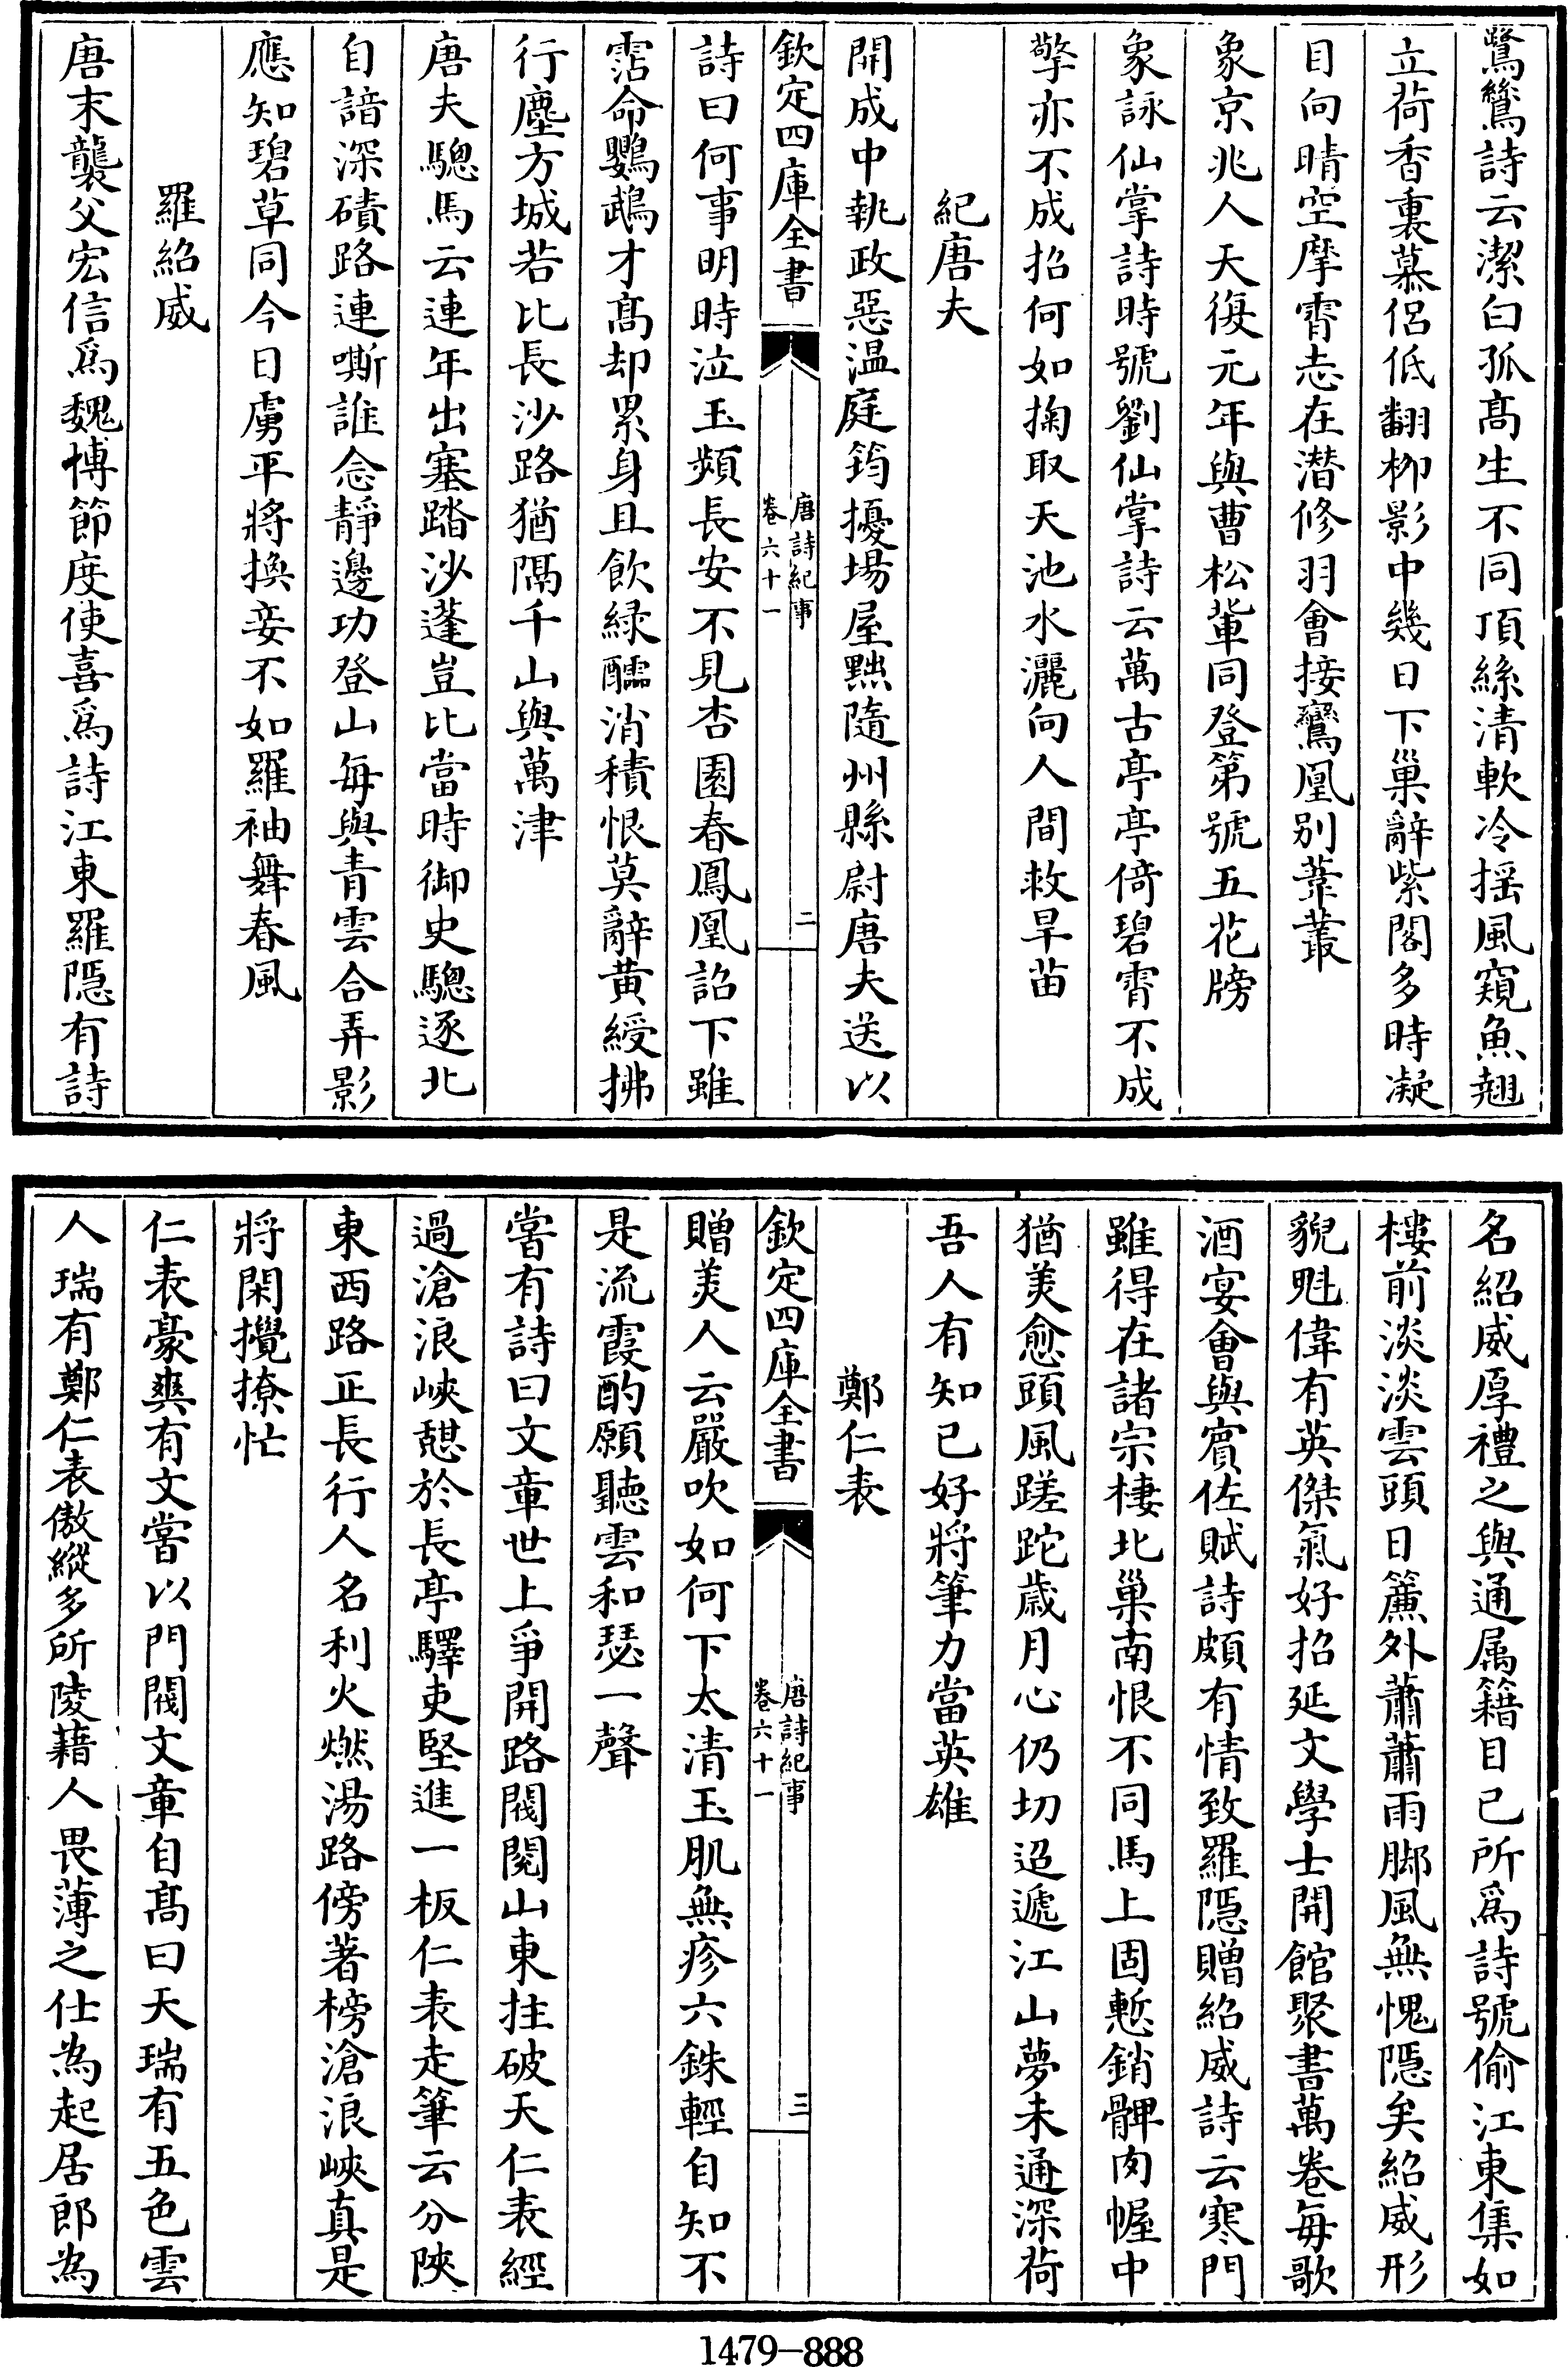 鷺鷥詩云潔白孤髙生不同頂絲清軟冷揺風窺魚翹
立荷香裏慕侶低翻栁影中幾日下巢辭紫閣多時凝
目向晴空摩霄志在潜修羽會接鸞凰别葦叢
象京兆人天復元年與曹松輩同登第號五花牓
象詠仙掌詩時號劉仙掌詩云萬古亭亭倚碧霄不成
擎亦不成招何如掬取天池水灑向人間救旱苗
紀唐夫
開成中執政惡温庭筠擾塲屋黜隨州縣尉唐夫送以
欽定四庫全書
唐詩紀事
卷六十一
二
詩曰何事明時泣玉頻長安不見杏園春鳳凰詔下雖
霑命鸚鵡才髙却累身且飲緑醽消積恨莫辭黄綬拂
行塵方城若比長沙路猶隔千山與萬津
唐夫驄馬云連年出塞踏沙蓬豈比當時御史驄逐北
自諳深磧路連嘶誰念靜邊功登山每與青雲合弄影
應知碧草同今日虜平將換妾不如羅袖舞春風
羅紹威
唐末襲父宏信爲魏博節度使喜爲詩江東羅隠有詩
名紹威厚禮之與通属籍目已所爲詩號偷江東集如
樓前淡淡雲頭日簾外蕭蕭雨脚風無愧隠矣紹威形
貌魁偉有英傑氣好招延文學士開館聚書萬卷每歌
酒宴會與賓佐賦詩頗有情致羅隠贈紹威詩云寒門
雖得在諸宗棲北巢南恨不同馬上固慙銷髀肉幄中
猶羙愈頭風蹉跎歳月心仍切迢遞江山夢未通深荷
吾人有知已好將筆力當英雄
鄭仁表
欽定四庫全書
唐詩紀事
卷六十一
三
贈羙人云嚴吹如何下太清玉肌無疹六銖輕自知不
是流霞酌願聽雲和瑟一聲
嘗有詩曰文章世上爭開路閥閱山東拄破天仁表經
過滄浪峽憇於長亭驛吏堅進一板仁表走筆云分陜
東西路正長行人名利火燃湯路傍著榜滄浪峽真是
將閑攪撩忙
仁表豪爽有文嘗以門閥文章自髙曰天瑞有五色雲
人瑞有鄭仁表傲縱多所陵藉人畏薄之仕為起居郎為
1479-888